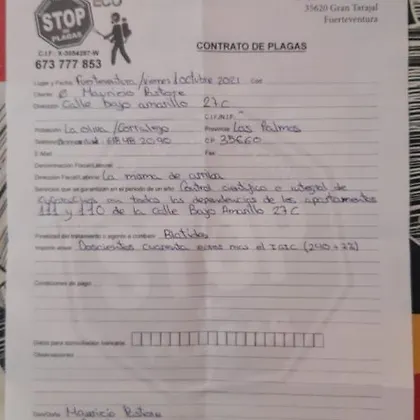 ECO
STOP
PLAGAS
35620 Gran Tarajal
Fuerteventura
673 777 853
CONTRATO DE PLAGAS
Lugar y Fecha: Fuerteventura / viernes 1 octubre 2021
Cliente: Mauricio
Dirección: Calle bajo amarillo 27C
C.I.F./N.I.F.:
Población: La oliva / Corralejo Provincia: Las Palmas
CP: 35660
E-Mail: Fax:
Denominación Fiscal/Laboral:
Dirección Fiscal/Laboral: La misma de arriba
Servicios que se garantizan en el periodo de un año: Control científico e integral de
cucarachas en todas las dependencias de los apartamentos
111 y 110 de la Calle Bajo Amarillo 27C
Penalidad del tratamiento o agente a combatir:
Importe anual: Doscientos cuarenta euros mas el IGIC (240 + 7%)
Condiciones de pago:
Datos para domiciliación bancaria:
Observaciones:
Mauricio